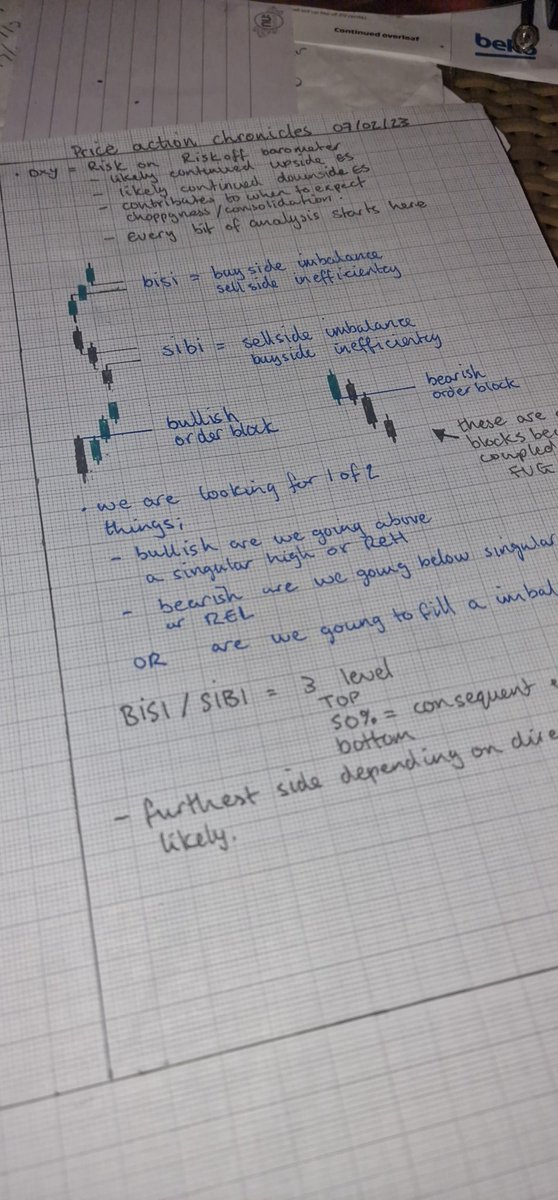 Continued overleaf
beko
Price action chronicles 07/02/23
• DXY = Risk on Risk off barometer
- likely continued upside ES
- likely continued downside ES
- contributes to when to expect
choppyness/consolidation.
- Every bit of analysis starts here
bisi = buyside imbalance
sellside inefficientcy
sibi = sellside imbalance
buyside inefficientcy
bearish
order block
bullish
order block
these are
blocks be
coupled
FVG
• we are looking for 1 of 2
things;
- bullish are we going above
a singular high or REH
- bearish are we going below singular
or REL
OR are we going to fill a imbal
BISI / SIBI = 3 level
TOP
50% = consequent
bottom
- furthest side depending on dire
likely.